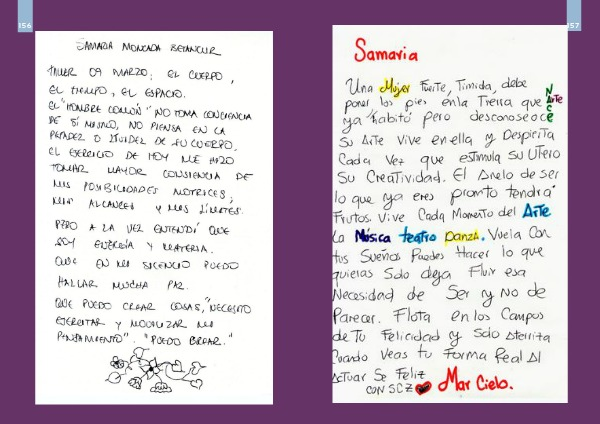 156
SAMARIA MONCADA BETANCUR
TALLER 09 MARZO: EL CUERPO,
EL TIEMPO, EL ESPACIO.
EL "HOMBRE COMÚN" NO TOMA CONCIENCIA
DE SÍ MISMO, NO PIENSA EN LA
PESADEZ O DE SU CUERPO.
EL EJERCICIO DE HOY ME HIZO
TOMAR MAYOR CONSIENCIA DE
MIS POSIBILIDADES MOTRICES,
MIS ALCANCES Y MIS LÍMITES.
PERO A LA VEZ ENTENDÍ QUE
SOY ENERGÍA Y MATERIA.
QUE EN MI SILENCIO PUEDO
HALLAR MUCHA PAZ.
QUE PUEDO CREAR COSAS, "NECESITO
EJERCITAR Y MOVILIZAR MI
PENSAMIENTO". "PUEDO CREAR."
157
Samaria
Una Mujer Fuerte, Timida, debe
poner los pies en la Tierra que NACE Arte
ya habitó pero desconoce
su Arte Vive en ella y Despierta
Cada Vez que estimula su Utero
Su Creatividad. El Anelo de ser
lo que ya eres pronto tendra
Frutos. Vive Cada Momento del Arte
La Música teatro Danza. Vuela Con
tus Sueños Puedes Hacer lo que
quieras Solo deja Fluir esa
Necesidad de Ser y No de
Parecer. Flota en los Campos
de Tu Felicidad y Solo Aterriza
Cuando Veas tu Forma Real Al
Actuar Se Feliz
CON SCZ Mar Cielo.